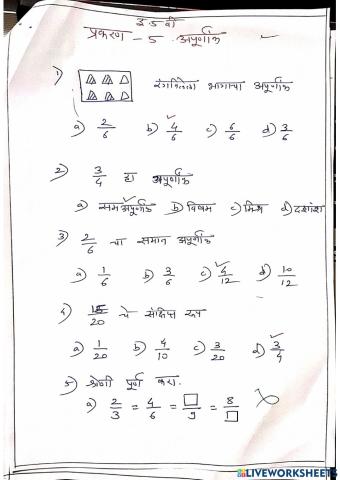 इ.5 वी
प्रकरण - 5 अपूर्णांक
1) रंगविलेल्या भागाचा अपूर्णांक
a) 2/6 b) 4/6 c) 6/6 d) 3/6
2) 3/4 हा अपूर्णांक
a) समअपूर्णांक b) विषम c) मिश्र d) दशांश
3) 2/6 चा समान अपूर्णांक
a) 1/6 b) 3/6 c) 4/12 d) 10/12
4) 15/20 चे संक्षिप्त रूप
a) 1/20 b) 4/10 c) 3/20 d) 3/4
5) श्रेणी पूर्ण करा.
a) 2/3 = 4/6 = □/9 = 8/□
LIVEWORKSHEETS